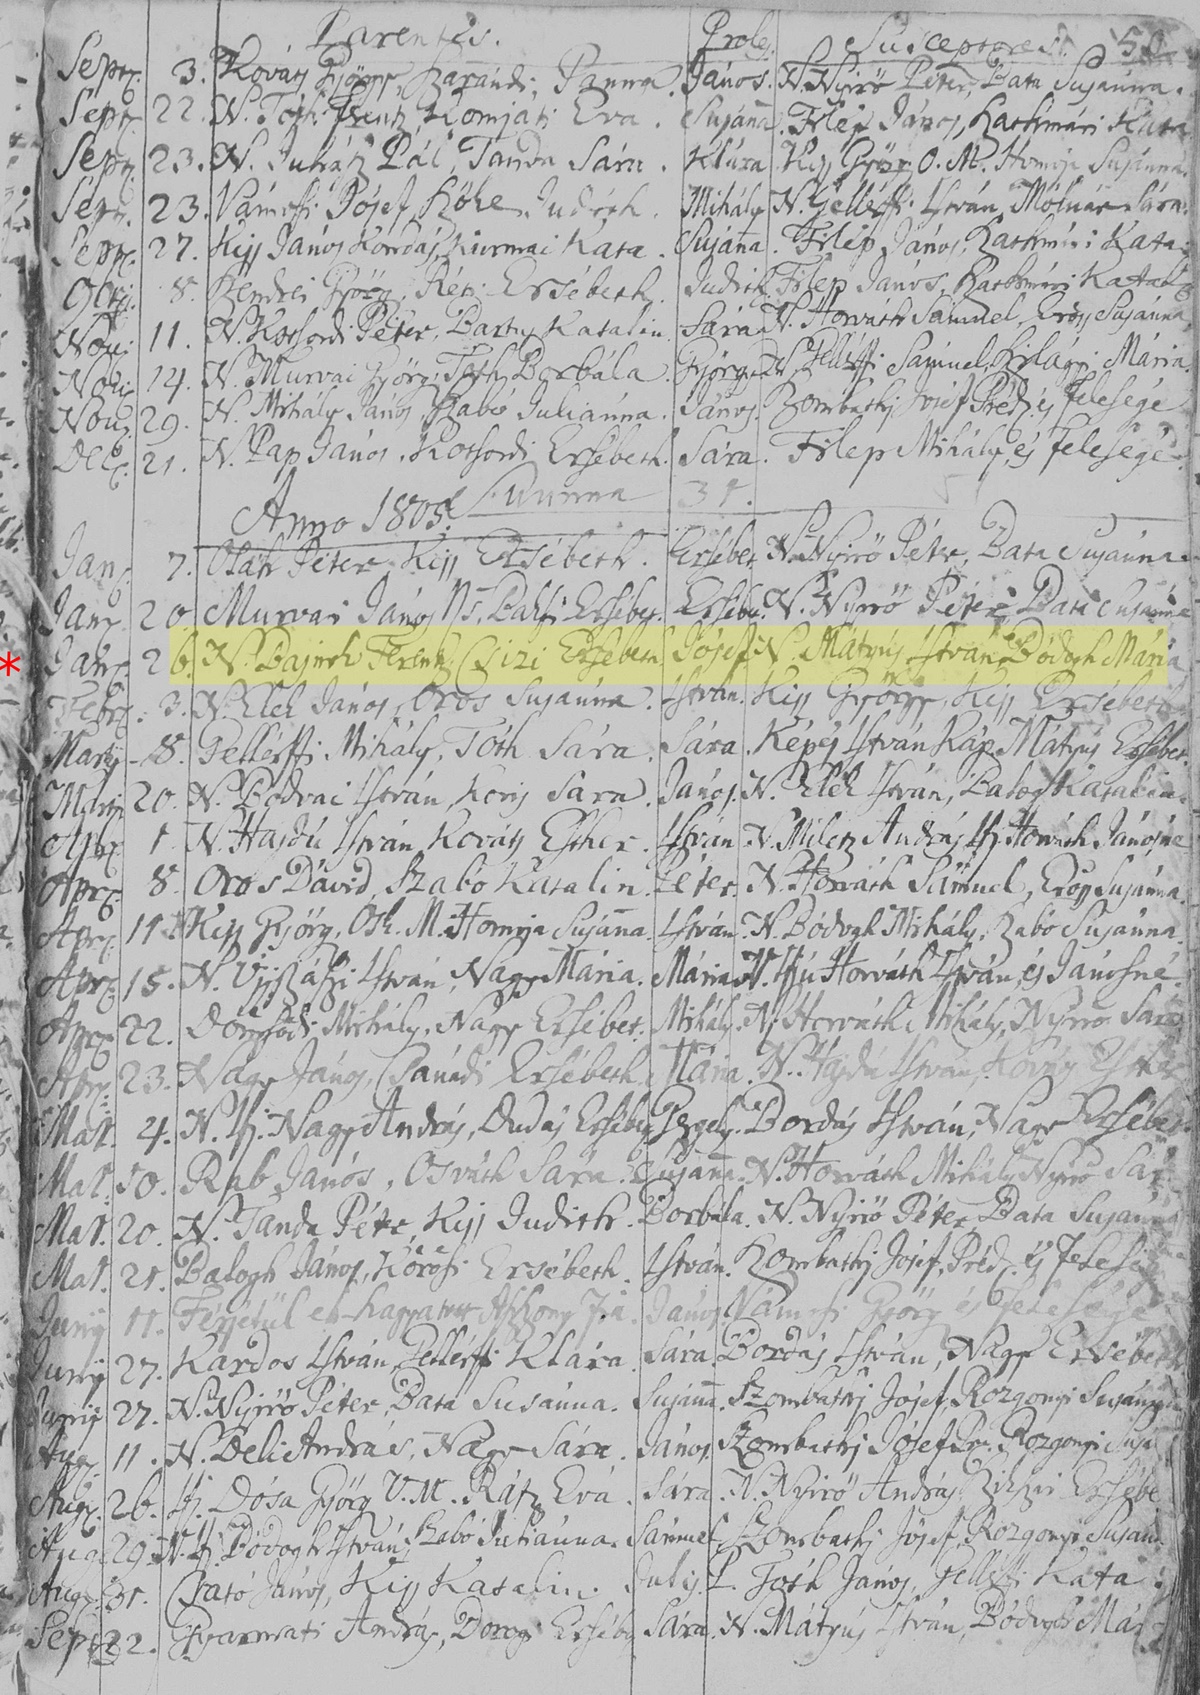 Parentes. Proles Susceptores.
Sept. 3. Kováts György, Parándi Panna. János. N. Nyirő Péter, Bata Susánna.
Sept. 22. N. Tóth Ferentz, Komjáti Éva. Susánna. Filep János, Kathmári Kata
Sept. 23. N. Juhász Pál, Tanda Sára. Klára Kiss György O. M. Homoja Susánna.
Sept. 23. Vámosi Jósef, Kőke Judith. Mihály N. Gellérffi István, Mólnár Sára.
Sept. 27. Kiss János Kordás, Kurmai Kata. Susánna. Filep János, Kathmári Kata
Octb. 8. Bendei György, Réti Ersébeth. Judith Filep János, Kathmári Kata
Nov. 11. N. Kotsordi Péter, Bartus Katalin. Sára N. Horváth Sámuel, Erőss Susánna
Nov. 14. N. Murvai György, Tóth Borbála. György N. Gellérffi Sámuel, Szilágyi Mária.
Nov. 29. N. Mihály János, Szabó Juliánna. János. Zombathy Jósef Préd. és felesége
Dec. 21. N. Pap János, Kotsordi Ersébeth. Sára. Filep Mihály és felesége.
Anno 1805. Summa 31.
Jan. 7. Oláh Péter Kiss Ersébeth. Ersébet N. Nyirő Péter, Bata Susánna.
Jan. 20. Murvai János Ersébet. Ersébet N. Nyirő Péter Bata Susánna
Jan. 26. N. Bajnok Ferentz, Csizi Ersébeth Jósef N. Mátyus István Bódogh Mária
Febr. 3. N. Elek János, Oros Susánna. István. Kiss György, Kiss Ersébeth
Martij 8. Gellérffi Mihály, Tóth Sára. Sára. Képes István Káp. Mátyus Ersébet
Martij 20. N. Bódvai István, Koris Sára. János. N. Elek István, Balog Katalin.
Apr. 1. N. Hajdú István, Kováts Esther. István N. Miletz András Ifj. Horváth Jánosné
Apr. 8. Oros Dávid, Szabó Katalin Péter N. Horváth Sámuel, Erőss Susánna.
Apr. 11. Kiss György, O. M. Homoja Susánna. István. N. Bódogh Mihály, Szabó Susánna.
Apr. 15. N. István, Nagy Mária. Mária N. Ifjú Horváth István, és Jánosné
Apr. 22. Dömsödi Mihály, Nagy Ersébet. Mihály. N. Horváth Mihály, Nyirő Sára
Apr. 23. Nagy János, Csanádi Ersébeth. Mária. N. Hajdú István, Kováts Esther
Maj. 4. N. Ifj. Nagy András, Dudás Ersébet Gergely. Bordás István, Nagy Ersébet
Maj. 10. Rab János, Osváth Sára. Susánna. N. Horváth Mihály, Nyirő Sár
Maj. 20. N. Tanda Péter, Kiss Judith. Borbála. N. Nyirő Péter Bata Susánna
Maj. 21. Balogh János, Kőrősi Ersébeth. István. Zombathy Jósef, Préd. és felesége
Junij 11. Férjetül el-hagyatott Asszony fia János. Vámosi György és felesége
Junij 27. Kardos István, Gellérffi Klára. Sára. Bordás István, Nagy Ersébeth
Junij 27. N. Nyirő Péter, Bata Susánna. Susánna. Szombathy Jósef, Rozgonyi Susánna
Aug. 11. N. Deli András, Nagy Sára. János. Szombathy Jósef Pr. Rozgonyi Susá
Aug. 26. Ifj. Dósa György V. M. Rátz Éva. Sára. N. Nyirő András Ersébe
Aug. 29. N. Ifj. Bódogh István, Szabó Juliánna. Sámuel. Szombathy Jósef, Rozgonyi Susán
Aug. 31. Csató János, Kiss Katalin. Julis. L. Tóth János, Gelléffi Kata.
Sept. 22. Gyarmati András, Dorogi Ersébet Sára. N. Mátyus István, Bódogh Már